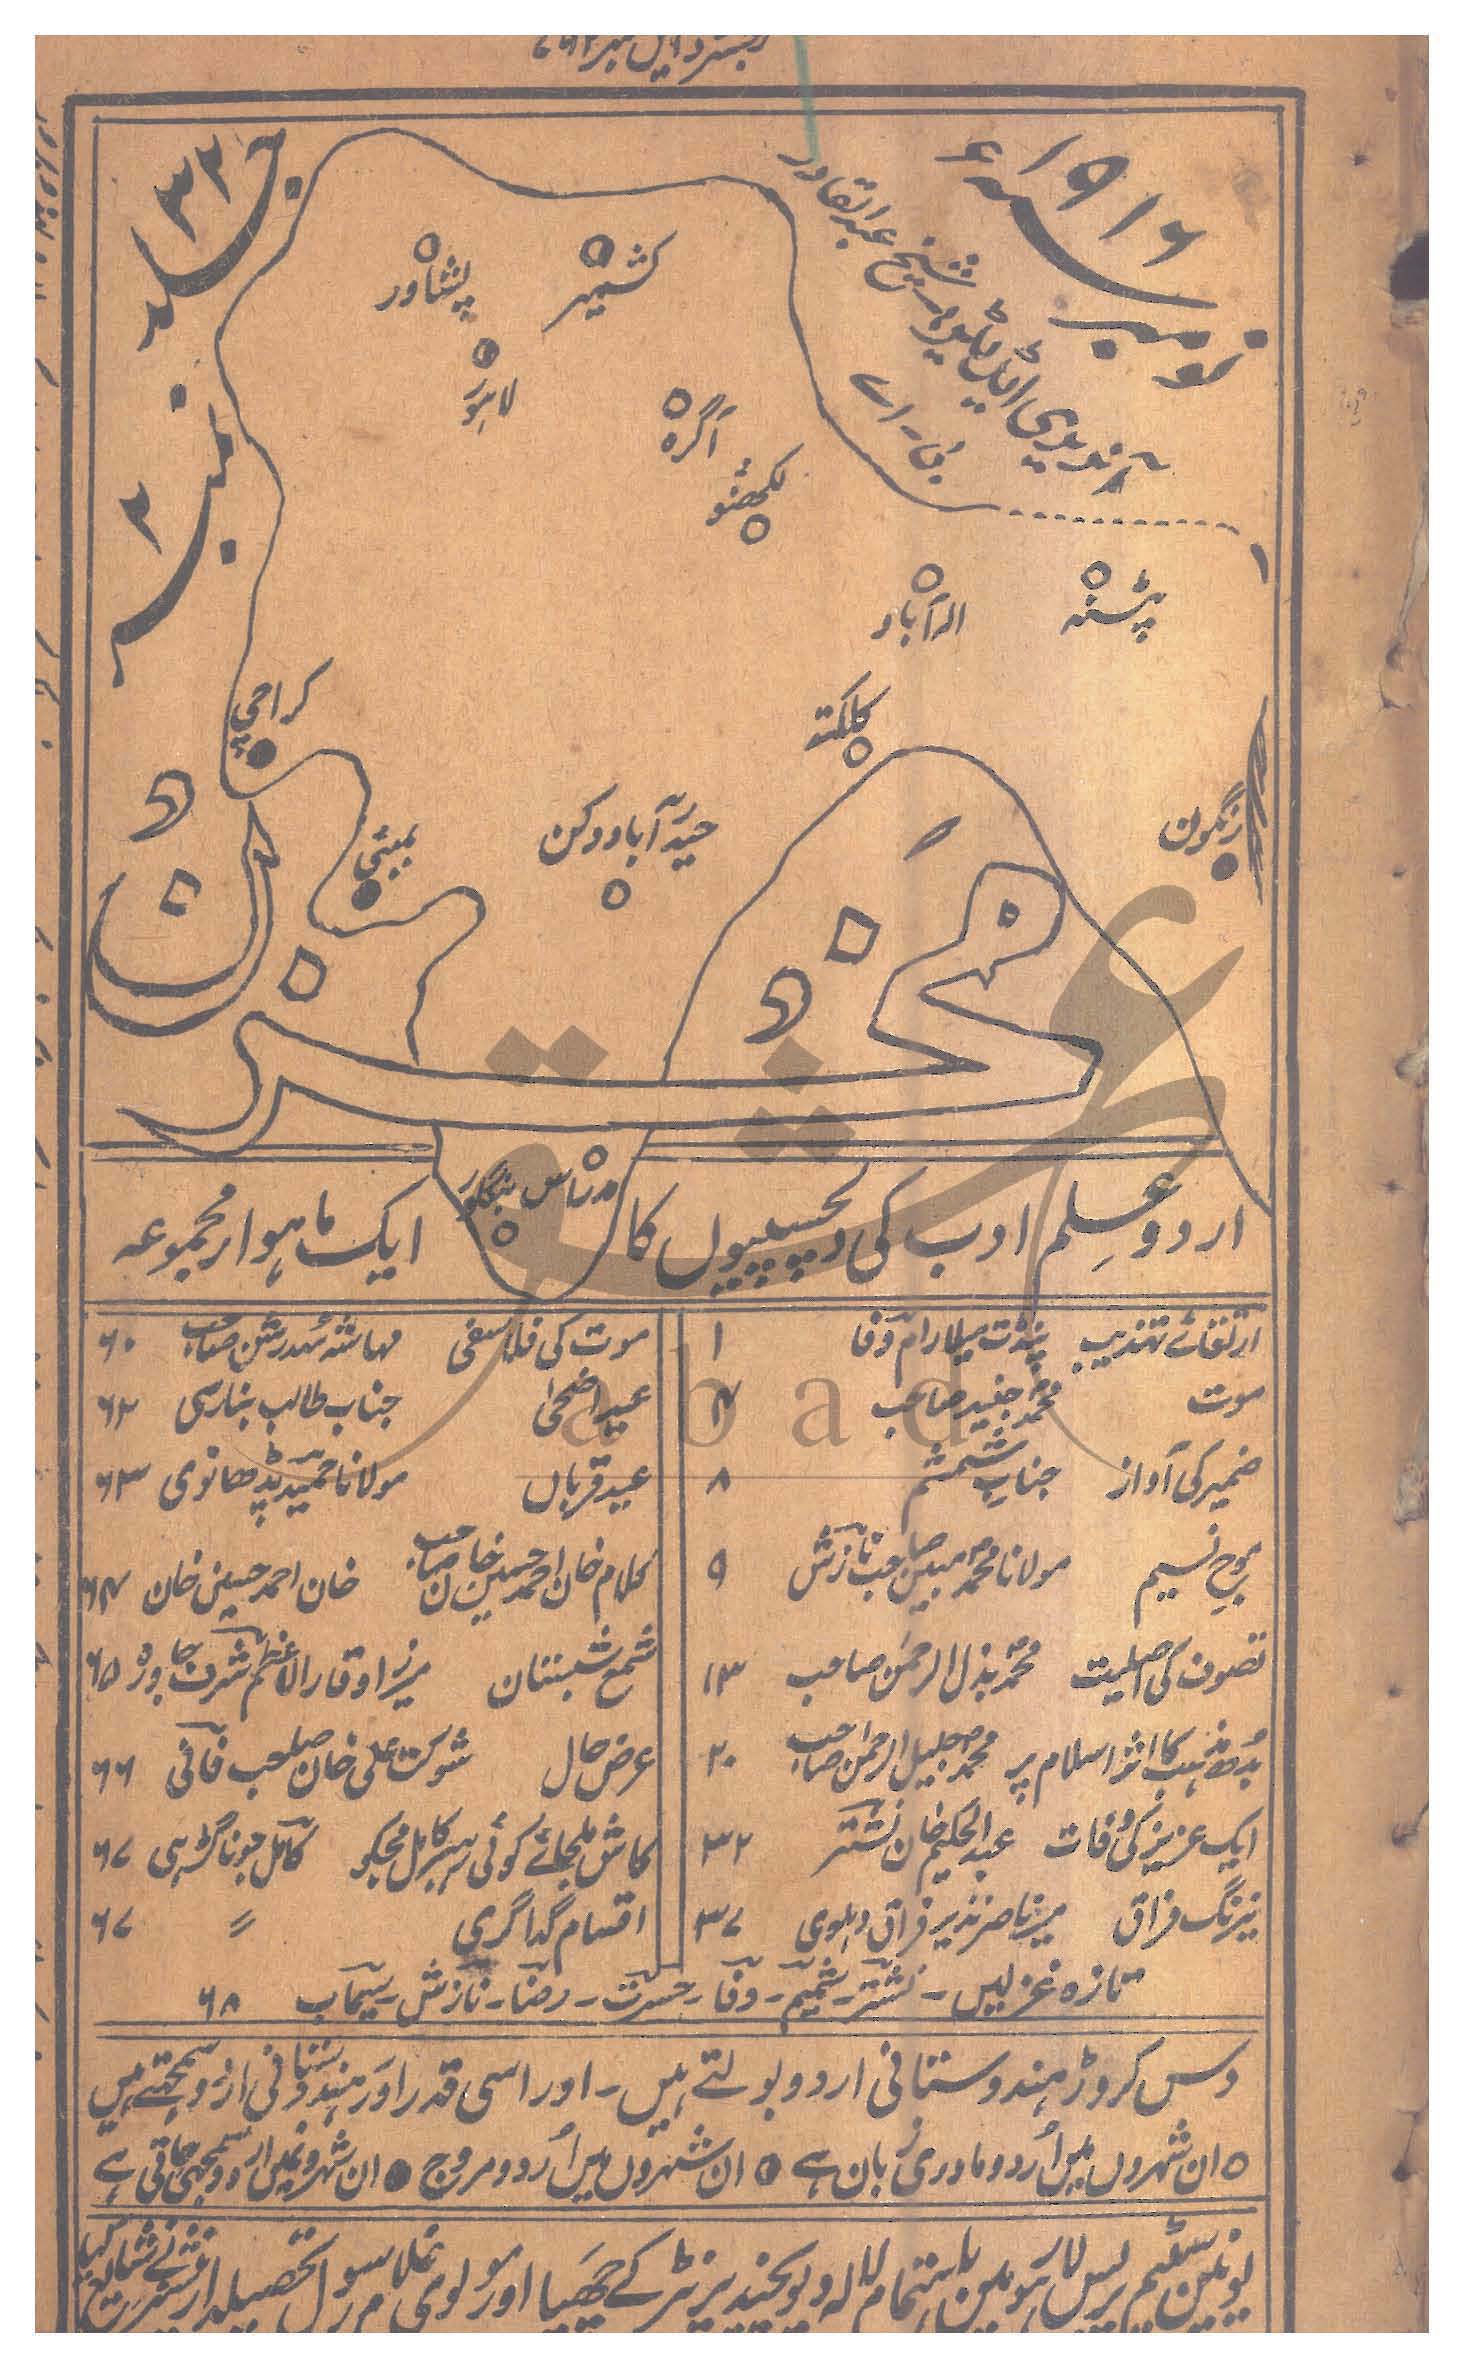 رجسٹرڈ ایل نمبر ۷۶۲
نومبر سنہ ۱۹۱۶ء
آنریری ایڈیٹر شیخ عبدالقادر
بی۔ اے
جلد ۳۲
نمبر ۲
پشاور
کشمیر
لاہور
آگرہ
لکھنؤ
الہ آباد
پٹنہ
کراچی
کلکتہ
رنگون
بمبئی
حیدرآباد دکن
مخزن
مدراس
بنگلور
اردو علم ادب کی دلچسپیوں کا ایک ماہوار مجموعہ
ارتقائے تہذیب پنڈت میلارام وفا ۱
موت محمد جنید صاحب ۴
ضمیر کی آواز جناب ششم ۸
موج نسیم مولانا محمد مبین صاحب نازش ۹
تصوف کی اصلیت محمد بذل الرحمن صاحب ۱۳
بدھ مذہب کا اثر اسلام پر محمد جلیل الرحمن صاحب ۲۰
ایک عزیز کی وفات عبدالحکیم خان نشتر ۳۲
نیرنگ فراق میر ناصر نذیر فراق دہلوی ۳۷
موت کی فلاسفی مہاشہ سدرشن صاحب ۶۰
عید اضحیٰ جناب طالب بنارسی ۶۲
عید قرباں مولانا حمید پڈھانوی ۶۳
کلام خان احمد حسین خان صاحب خان احمد حسین خان ۶۴
شمع شبستان میرزا وقار الاعظم شرف جاورہ ۶۵
عرض حال شوکت علی خان صاحب فانی ۶۶
کاش ملجائے کوئی رہبر کامل مجکو کامل جوناگڑہی ۶۷
اقسام گداگری 〃 ۶۷
تازہ غزلیں۔ نشتر۔ شمیم۔ وفا۔ حسرت۔ رضا۔ نازش۔ سیماب ۶۸
دس کروڑ ہندوستانی اردو بولتے ہیں۔ اور اسی قدر اور ہندوستانی اردو سمجھتے ہیں
○ ان شہروں میں اُردو مادری زبان ہے ◉ ان شہروں میں اُردو مروج ● ان شہرونمیں اردو سمجھی جاتی ہے
یونین سٹیم پریس لاہور میں باہتمام لالہ دیوی چند پرنٹر کے چھپا اور مولوی غلام رسول تحصیلدار پنشنر نے شائع کیا